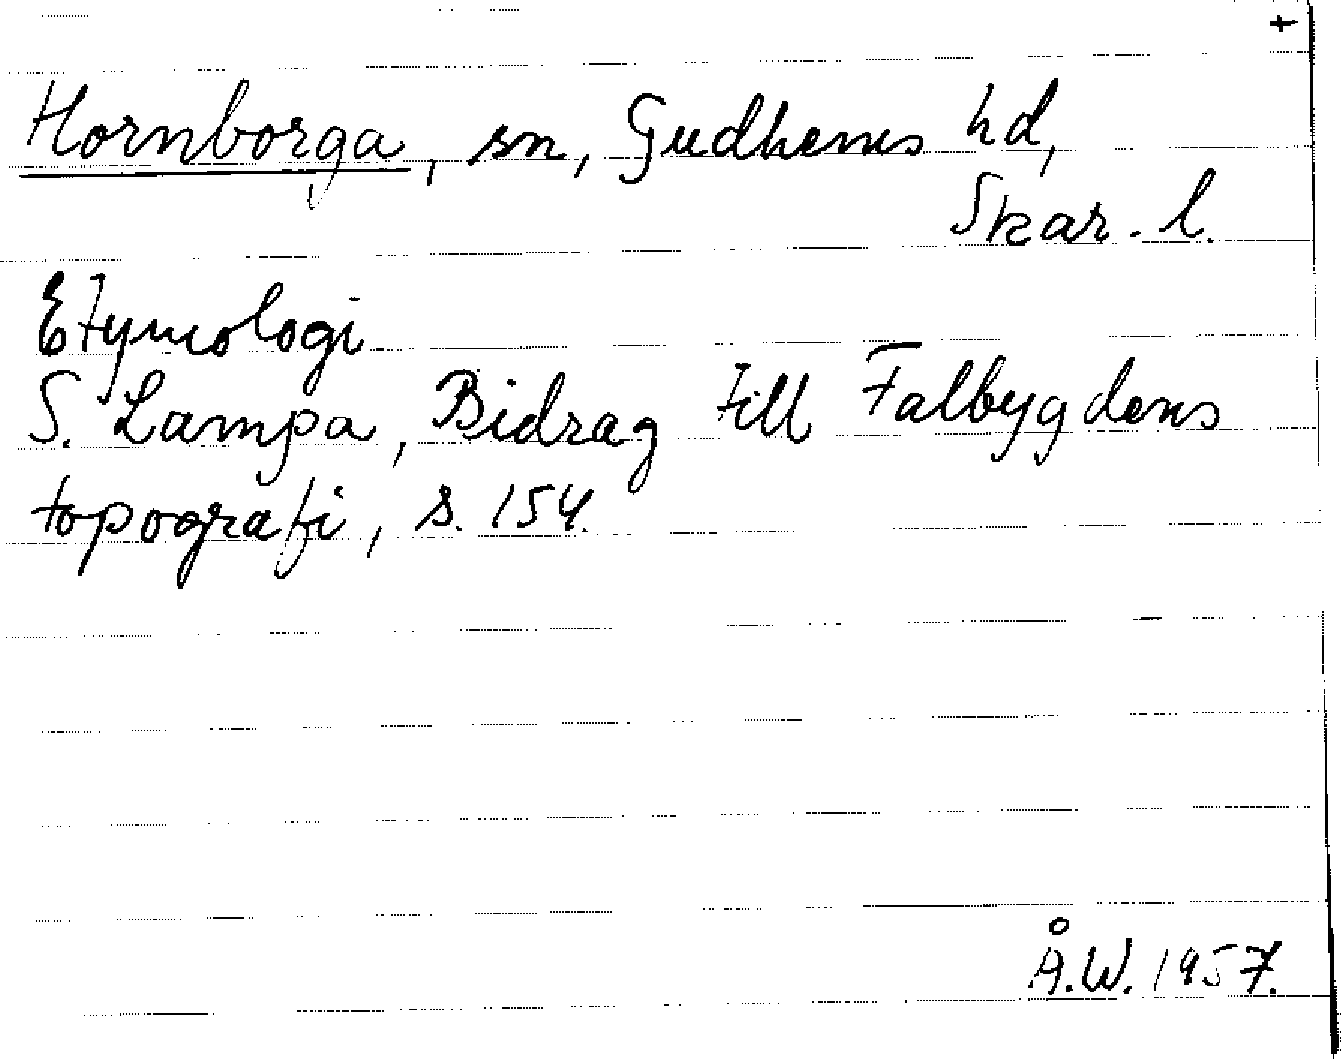 +
Hornborga, sn, Gudhems hd,
Skar. l.
Etymologi
S. Lampa, Bidrag till Falbygdens
topografi, s. 154.
Å.W. 1957.